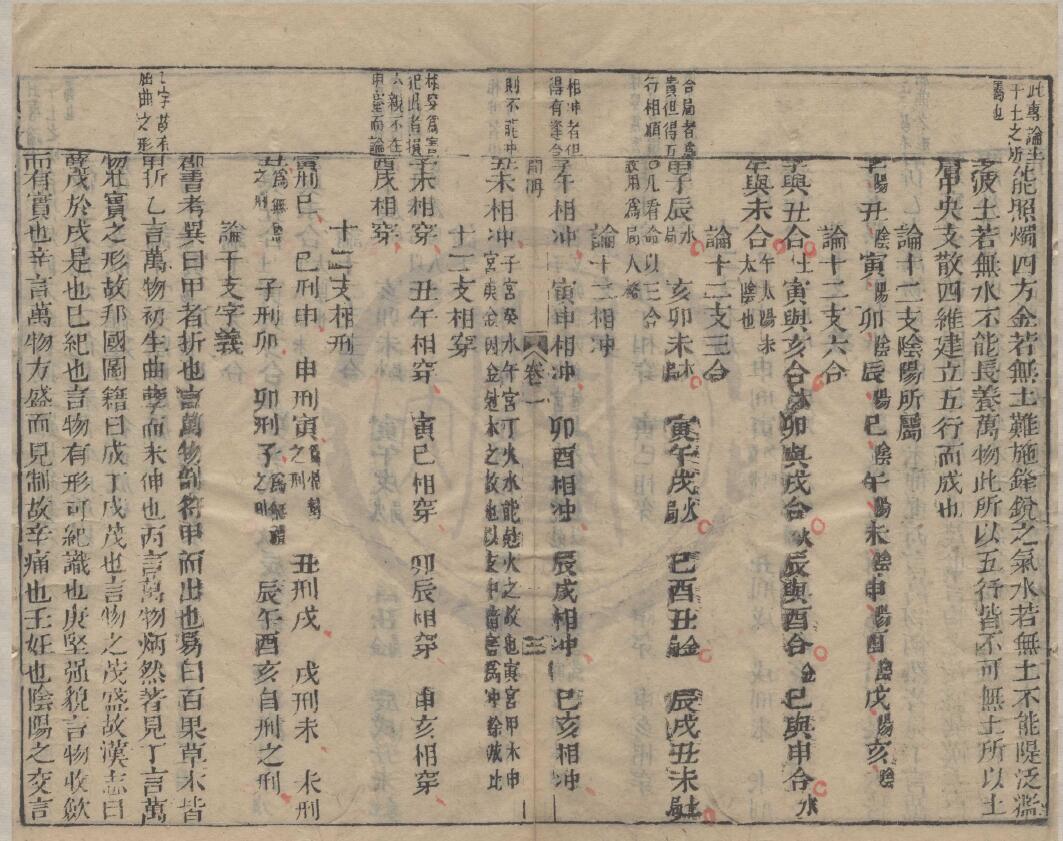 此專論土
于土之所
屬也
能照燭四方金若無土難施鋒銳之氣水若無土不能隄泛濫
之波土若無水不能長養萬物此所以五行皆不可無土所以土
居中央支散四維建立五行而成也
論十二支陰陽所屬
子陽丑陰寅陽卯陰辰陽巳陰午陽未陰申陽酉陰戌陽亥陰
論十二支六合
子與丑合土寅與亥合木卯與戌合火辰與酉合金巳與申合水
午與未合午太陽未太陰也
論十二支三合
合局者爲
貴但得五
行相順
申子辰水局 亥卯未木局 寅午戌火局 巳酉丑金局 辰戌丑未土局
○凡看命以三合
論十二相冲
相冲者但
得有逢合
則不能冲
子午相冲 寅申相冲 卯酉相冲 辰戌相冲 巳亥相冲
卷一 三
丑未相冲子宮癸水午宮丁火水能尅火之故也寅宮甲木申
宮庚金因金尅木之故也以支中所害爲冲餘倣此
十二支相穿
相穿爲害
犯此者損
六親不在
冲當而論
子未相穿 丑午相穿 寅巳相穿 卯辰相穿 申亥相穿
酉戌相穿
十二支相刑
寅刑巳 巳刑申 申刑寅爲恃勢之刑 丑刑戌 戌刑未 未刑
丑爲無恩之刑 子刑卯 卯刑子爲無禮之刑 辰午酉亥自刑之刑
論干支字義
羣書考異曰甲者折也言萬物剖符甲而出也易曰百果草木皆
乙字故有
屈曲之形
甲折乙言萬物初生曲孽而未伸也丙言萬物炳然著見丁言萬
物壯實之形故邦國圖籍曰成丁戊茂也言物之茂盛故漢志曰
豐茂於戊是也巳紀也言物有形可紀識也庚堅强貌言物收斂
而有實也辛言萬物方盛而見制故辛痛也壬妊也陰陽之交言